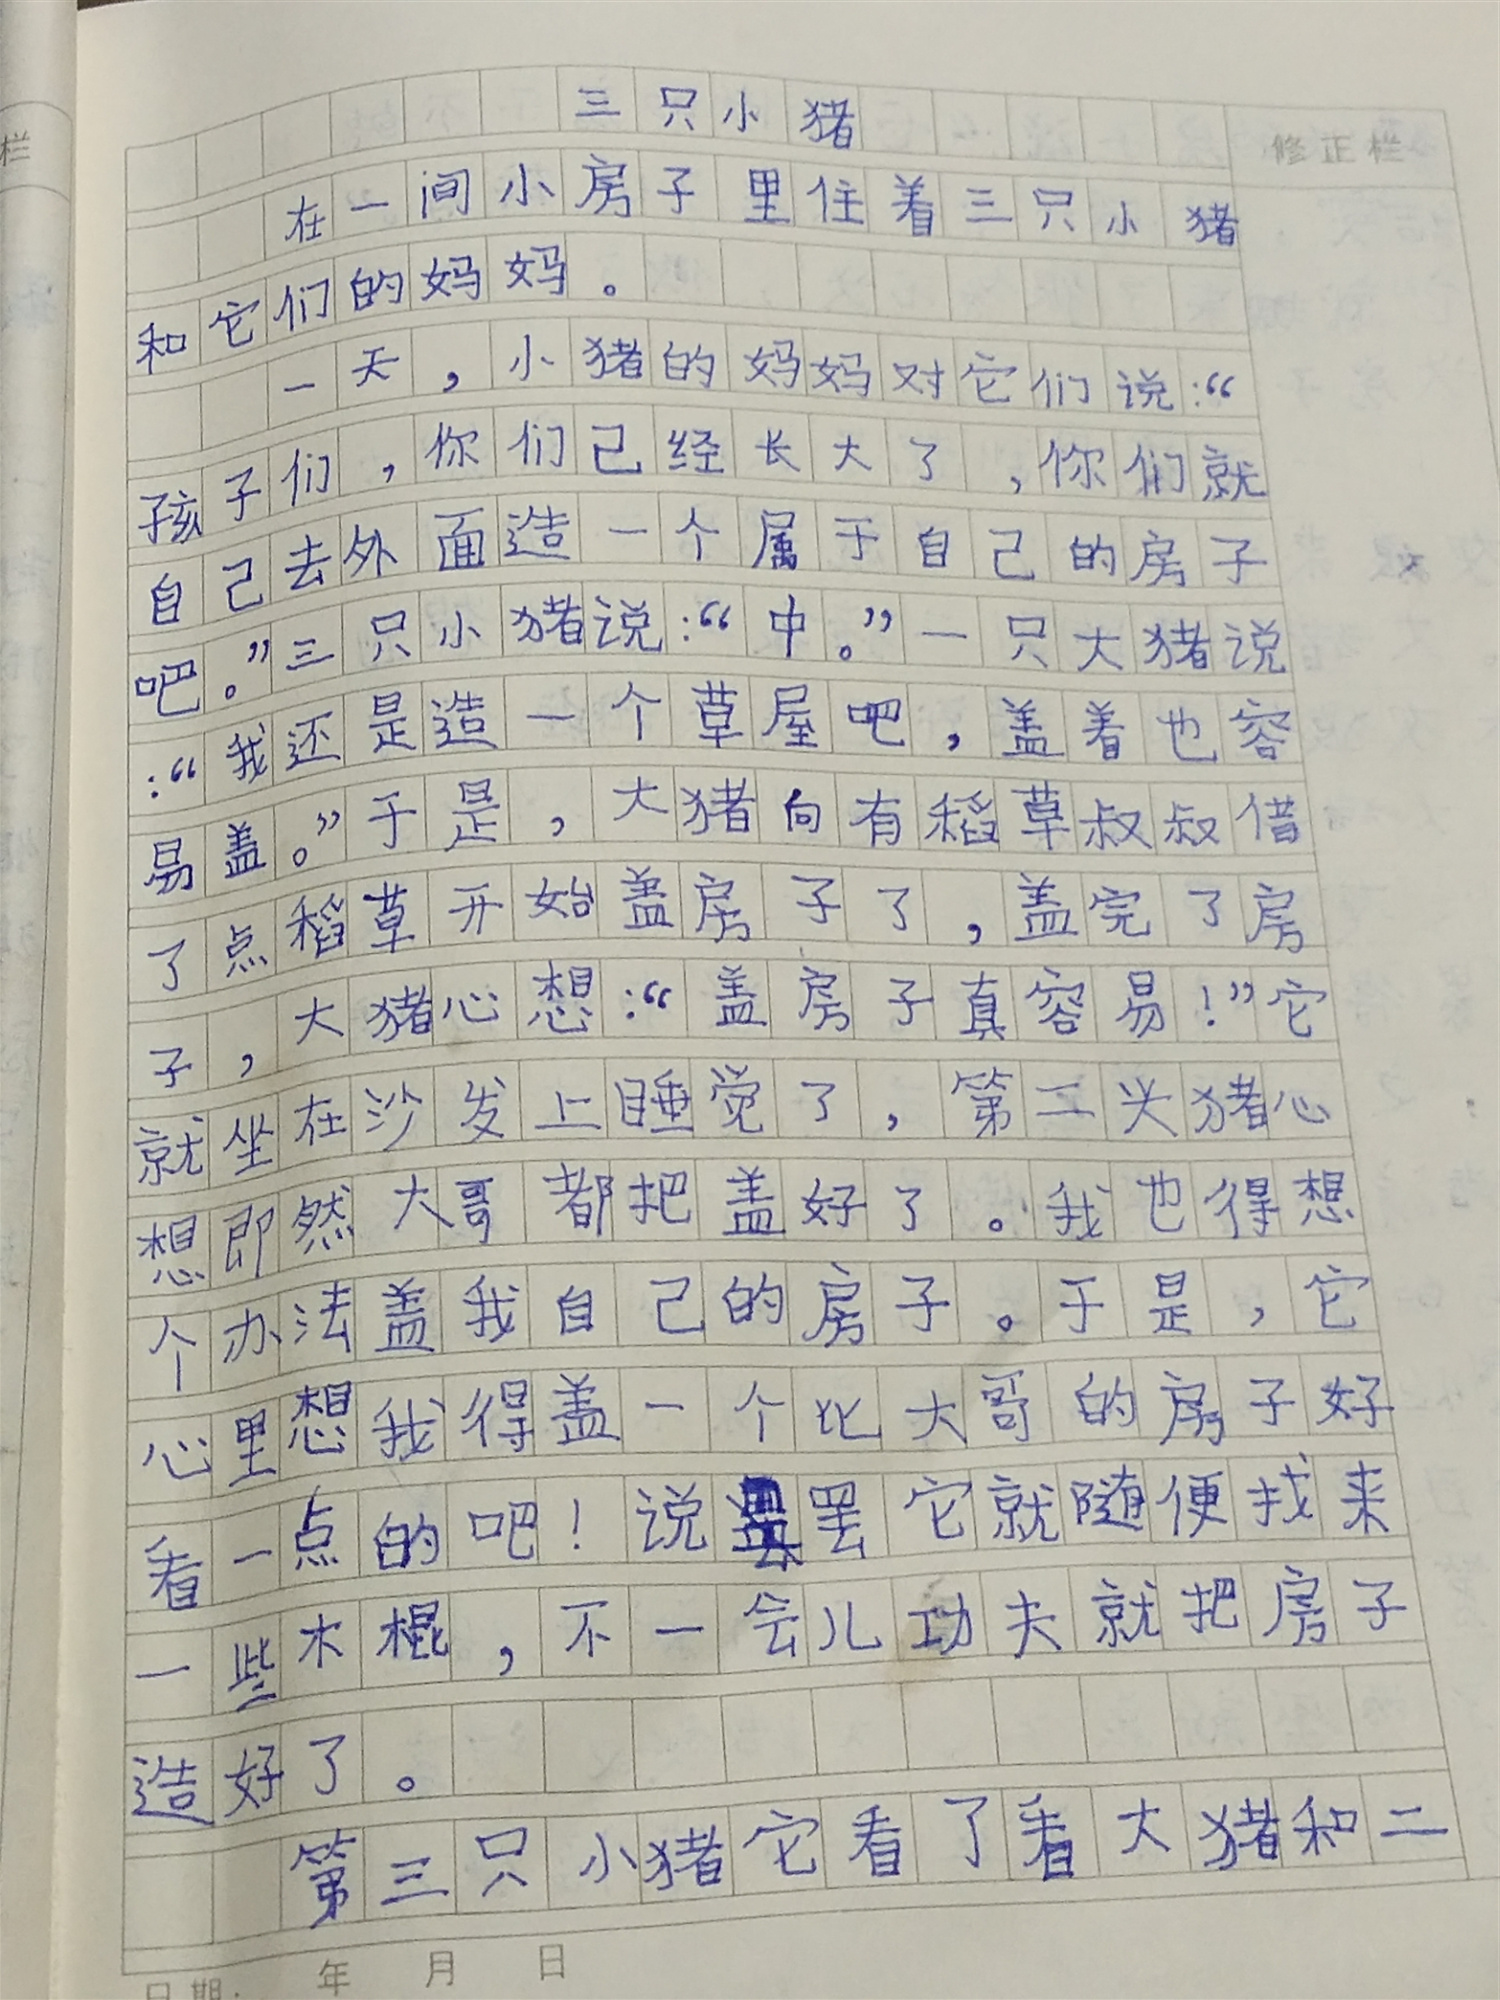 三只小猪
修正栏
在一间小房子里住着三只小猪
和它们的妈妈。
一天，小猪的妈妈对它们说：“
孩子们，你们已经长大了，你们就
自己去外面造一个属于自己的房子
吧。”三只小猪说：“中。”一只大猪说
：“我还是造一个草屋吧，盖着也容
易盖。”于是，大猪向有稻草叔叔借
了点稻草开始盖房子了，盖完了房
子，大猪心想：“盖房子真容易！”它
就坐在沙发上睡觉了，第二头猪心
想即然大哥都把盖好了。我也得想
个办法盖我自己的房子。于是，它
心里想我得盖一个比大哥的房子好
看一点的吧！说罢它就随便找来
一些木棍，不一会儿功夫就把房子
造好了。
第三只小猪它看了看大猪和二
日期： 年 月 日
栏